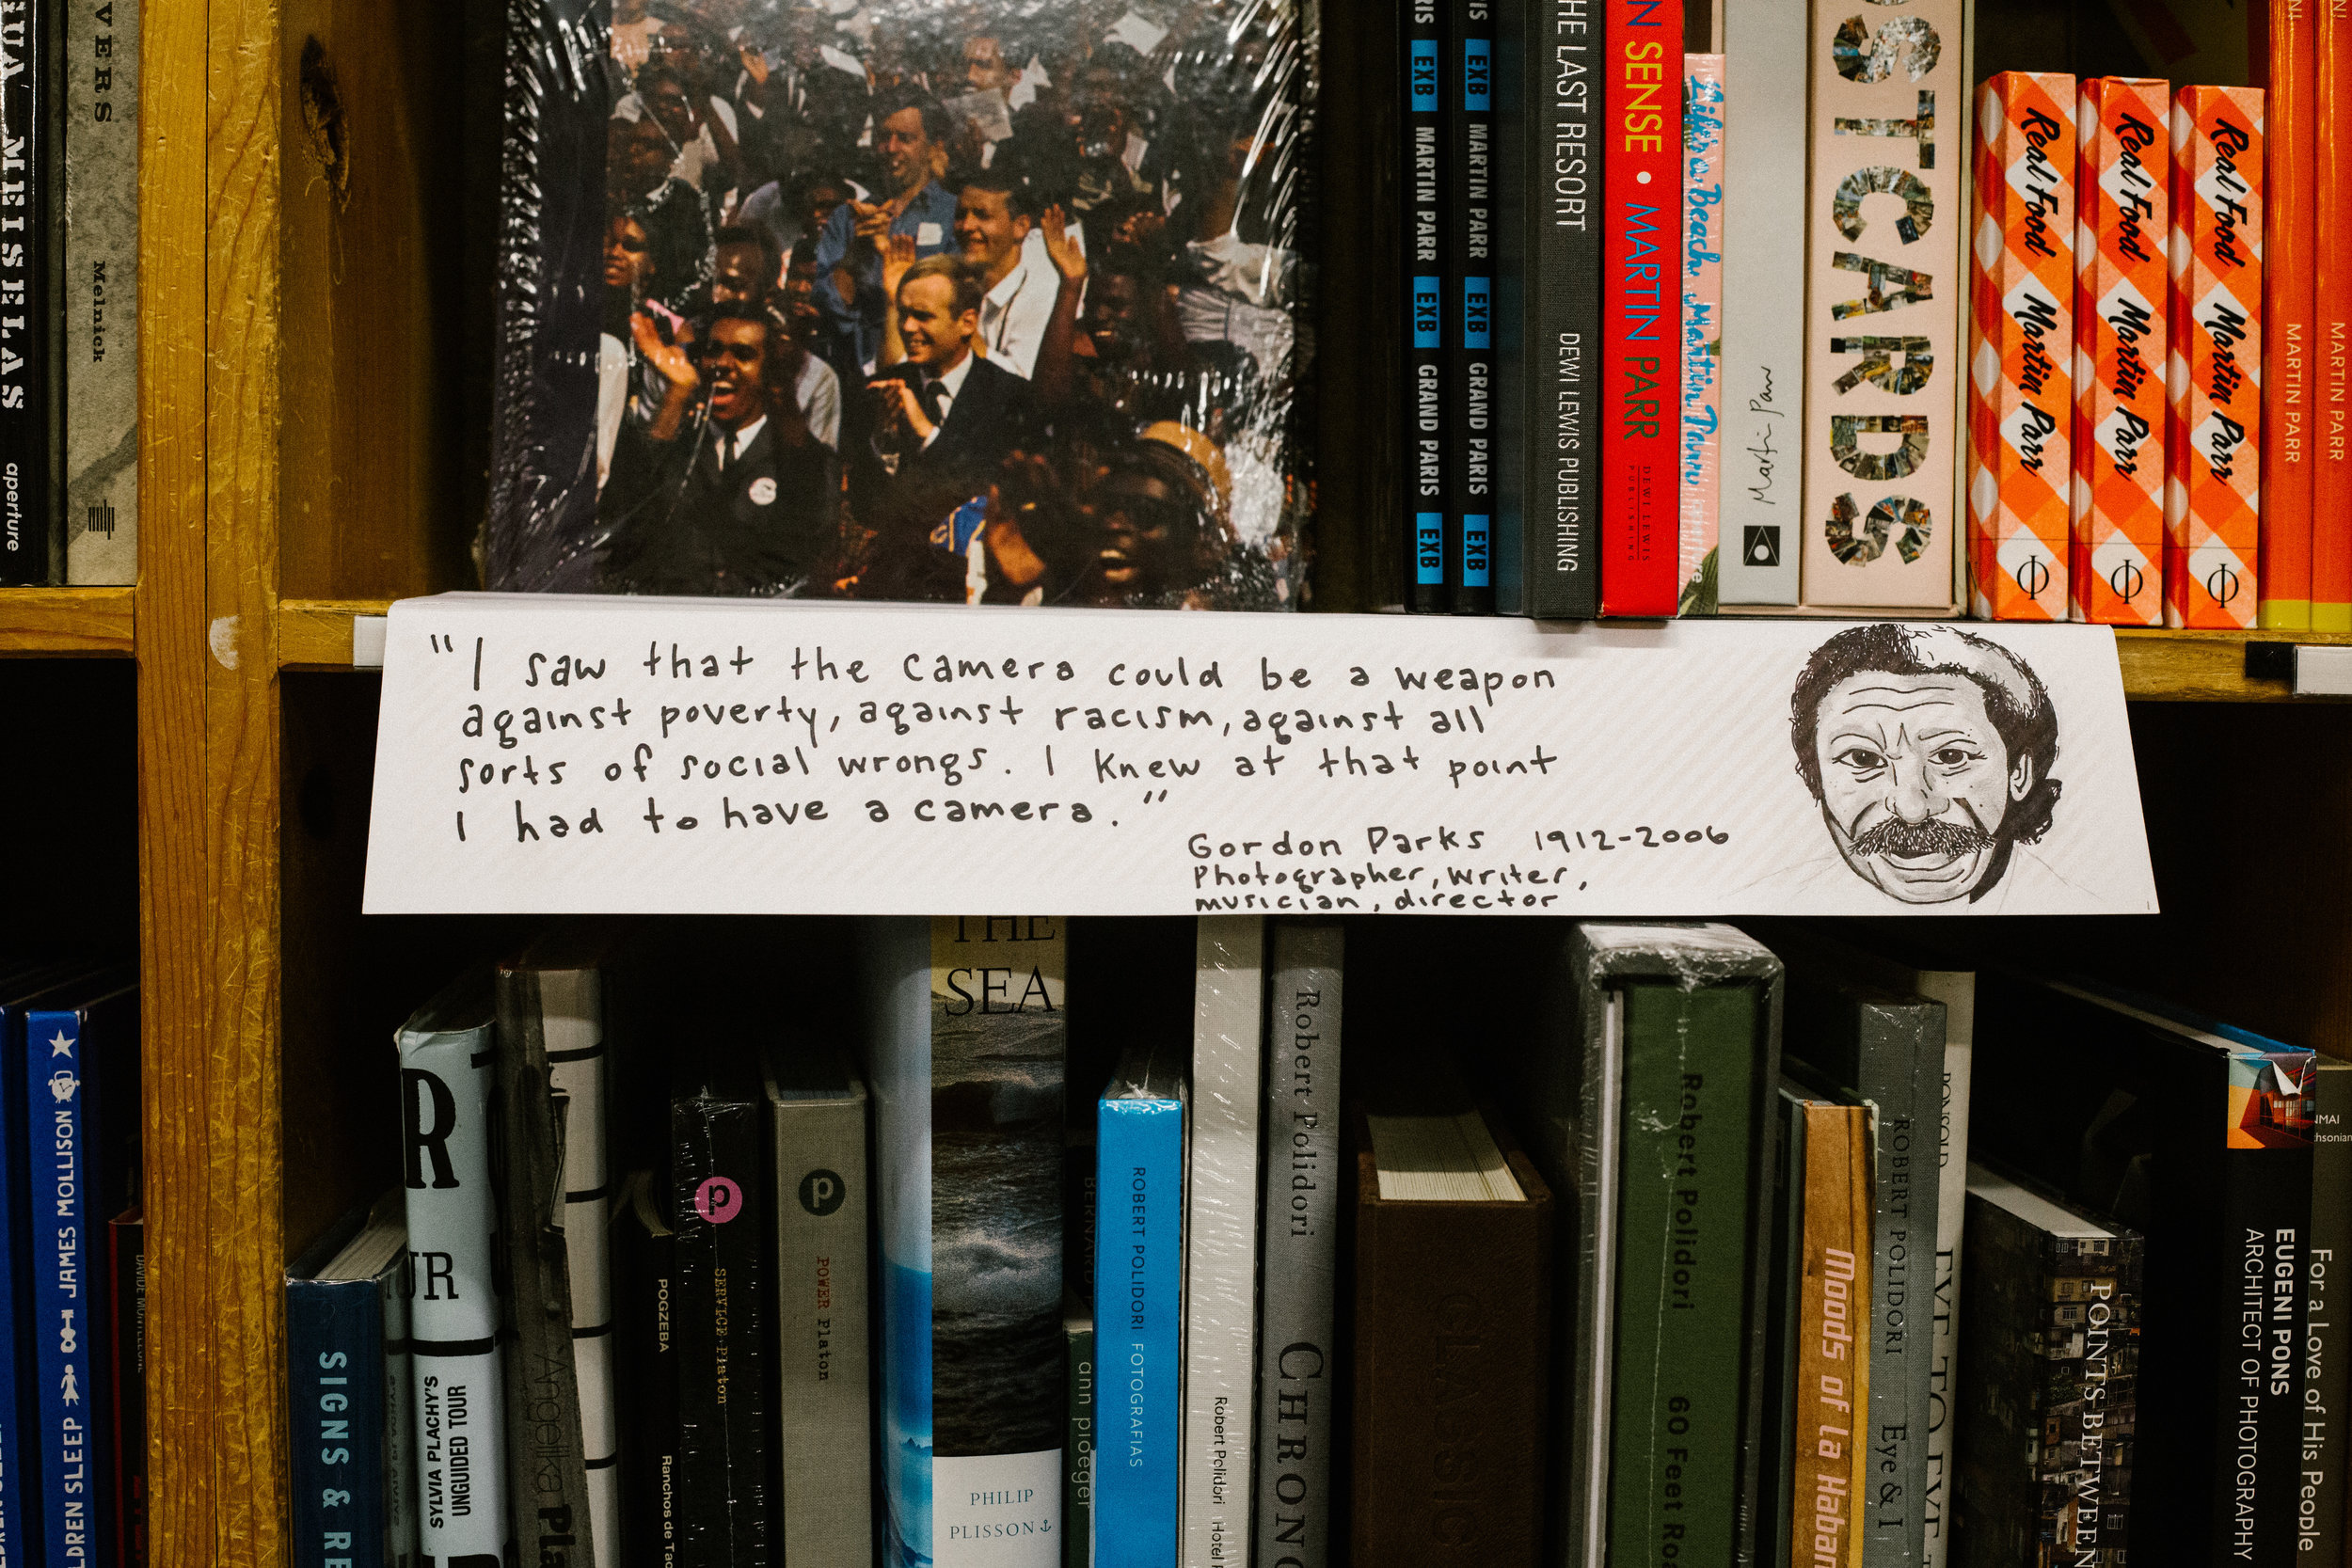 MEISELAS
aperture
VERS
Melnick
EXB MARTIN PARR EXB GRAND PARIS EXB
EXB MARTIN PARR EXB GRAND PARIS EXB
THE LAST RESORT DEWI LEWIS PUBLISHING
SENSE • MARTIN PARR DEWI LEWIS PUBLISHING
Life's a Beach. Martin Parr
Martin Parr
STCARDS
Real Food Martin Parr
Real Food Martin Parr
Real Food Martin Parr
MARTIN PARR
MARTIN PARR
"I saw that the camera could be a weapon
against poverty, against racism, against all
sorts of social wrongs. I knew at that point
I had to have a camera."
Gordon Parks 1912-2006
Photographer, writer,
musician, director
JAMES MOLLISON
SLEEP
SIGNS & RE
UR
SYLVIA PLACHY'S
UNGUIDED TOUR
Angelika Pla
POGZEBA Ranchos de Tao
p
SERVICE Platon
p
POWER Platon
THE
SEA
PHILIP
PLISSON
BERNARD
ann ploeger
ROBERT POLIDORI FOTOGRAFIAS
Robert Polidori Hotel
Robert Polidori CHRONO
CLASSIC
Robert Polidori 60 Feet Ro
Moods of la Haban
ROBERT POLIDORI Eye & I
EYE TO EYE
POINTS BETWEEN
EUGENI PONS
ARCHITECT OF PHOTOGRAPHY
For a Love of His People